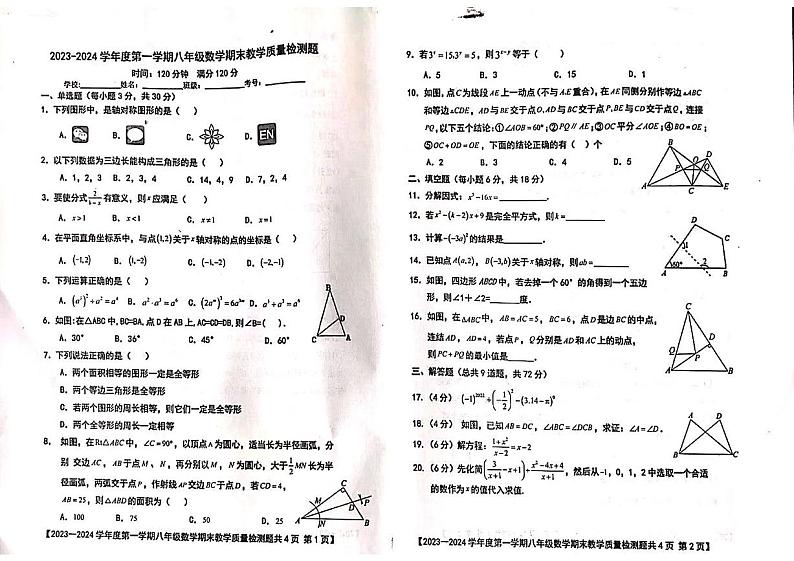 2023-2024 学年度第一学期八年级数学期末教学质量检测题
时间：120 分钟 满分 120 分
学校:________姓名:________班级:________考号:________
一、单选题（每小题 3 分，共 30 分）
1. 下列图形中，是轴对称图形的是（ ）
A. B. C. D. EN
2. 以下列数据为三边长能构成三角形的是（ ）
A. 1，2，3 B. 2，3，4 C. 14，4，9 D. 7，2，4
3. 要使分式 2/(1-x) 有意义，则x应满足（ ）
A. x>1 B. x<1 C. x≠1 D. x=1
4. 在平面直角坐标系中，与点(1,2)关于x轴对称的点的坐标是（ ）
A. (-1,2) B. (1,-2) C. (-1,-2) D. (-2,-1)
5. 下列运算正确的是（ ）
A. (a²)²÷a²=a⁴ B. a²·a³=a⁶ C. (2a²)³=6a³ᵐ D. a³+a³=a³
6. 如图:在△ABC 中,BC=BA,点 D 在 AB 上,AC=CD=DB,则∠B=( ).
A. 30° B. 36° C. 45° D. 60°
B D C A
7. 下列说法正确的是（ ）
A. 两个面积相等的图形一定是全等形
B. 两个等边三角形是全等形
C. 若两个图形的周长相等，则它们一定是全等形
D. 两个全等形的周长一定相等
8. 如图，在Rt△ABC中，∠C=90°，以顶点A为圆心，适当长为半径画弧，分
别 交边 AC，AB于点 M 、N，再分别以 M，N为圆心，大于 1/2 MN 长为半
径画弧，两弧交于点P，作射线AP交边BC于点D，若CD=4，
AB=25，则△ABD的面积为（ ）
A. 100 B. 75 C. 50 D. 25
C M D P A N B
【2023—2024 学年度第一学期八年级数学期末教学质量检测题共 4 页 第 1 页】
9. 若3ˣ=15,3ʸ=5，则3ˣ⁻ʸ等于（ ）
A. 5 B. 3 C. 15 D. 1
10. 如图，点C为线段AE上一动点（不与A,E重合），在AE同侧分别作等边△ABC
和等边△CDE，AD与BE交于点O,AD与BC交于点P,BE与CD交于点Q，连接
PQ,以下五个结论:①∠AOB=60°;②PQ∥AE;③OC平分∠AOE;④BO=OE;
⑤OC+OD=OE，下面的结论正确的有（ ）个
A. 2 B. 3 C. 4 D. 5
B D O P Q A C E
二、填空题（每小题 6 分，共 18 分）
11. 分解因式：x³-16x=________.
12. 若x²-(k-2)x+9是完全平方式，则k=______
13. 计算(-3a)²的结果是______.
14. 已知点A(a,2)，B(-3,b)关于x轴对称，则ab=______
15. 如图，四边形ABCD中，若去掉一个 60° 的角得到一个五边
形，则∠1+∠2=______度.
D C 1 60° 2 A B
16. 如图，在△ABC中，AB=AC=5，BC=6，点D是边BC的中点，
连结AD，AD=4，若点P，Q分别是AD和AC上的动点，
则PC+PQ的最小值是______.
C Q P D A B
三、解答题（总共 9 道题，共 72 分）
17.（4 分） (-1)²⁰²¹+(-1/2)⁻²-(3.14-π)⁰
18.（4 分） 如图，已知AB=DC，∠ABC=∠DCB，求证：∠A=∠D.
A D B C
19.（6 分）解方程：(1+x²)/(x-2)=x-2
20.（6 分）先化简(3/(x+1)-x+1)÷(x²-4x+4)/(x+1)，然后从-1，0，1，2 中选取一个合适
的数作为x的值代入求值.
【2023—2024 学年度第一学期八年级数学期末教学质量检测题共 4 页 第 2 页】